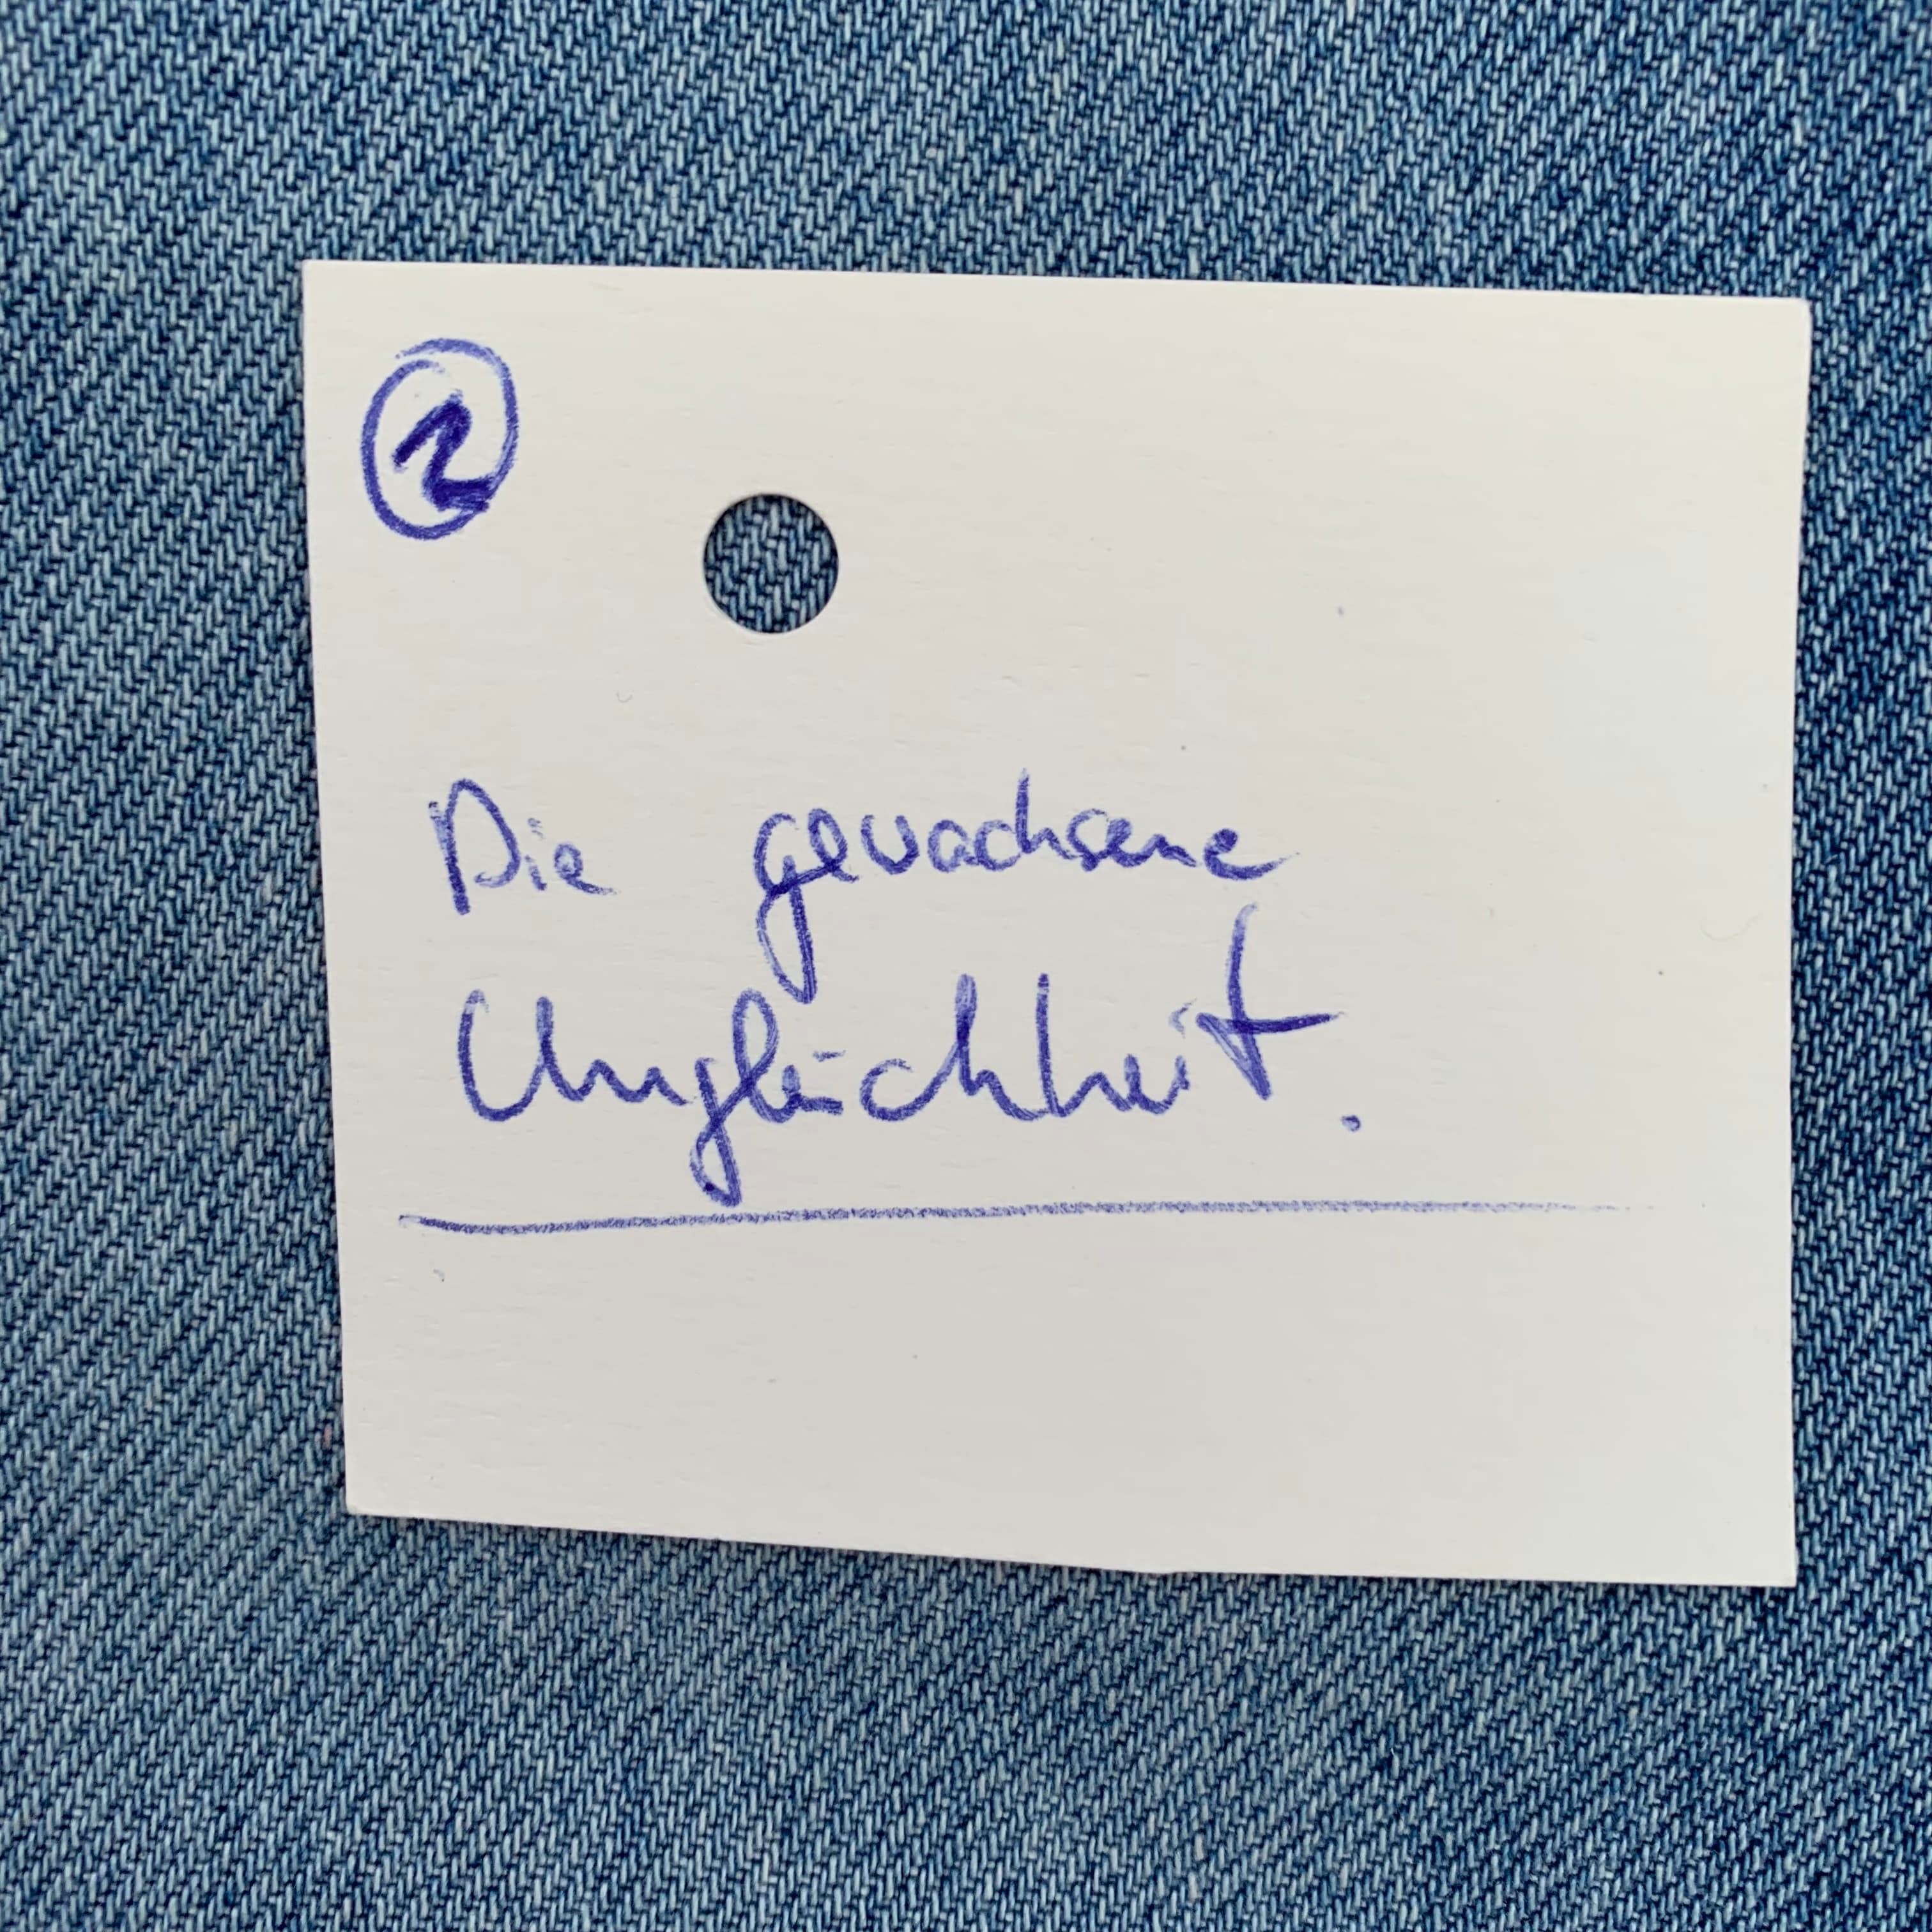 2
Die gewachsene
Ungleichheit.